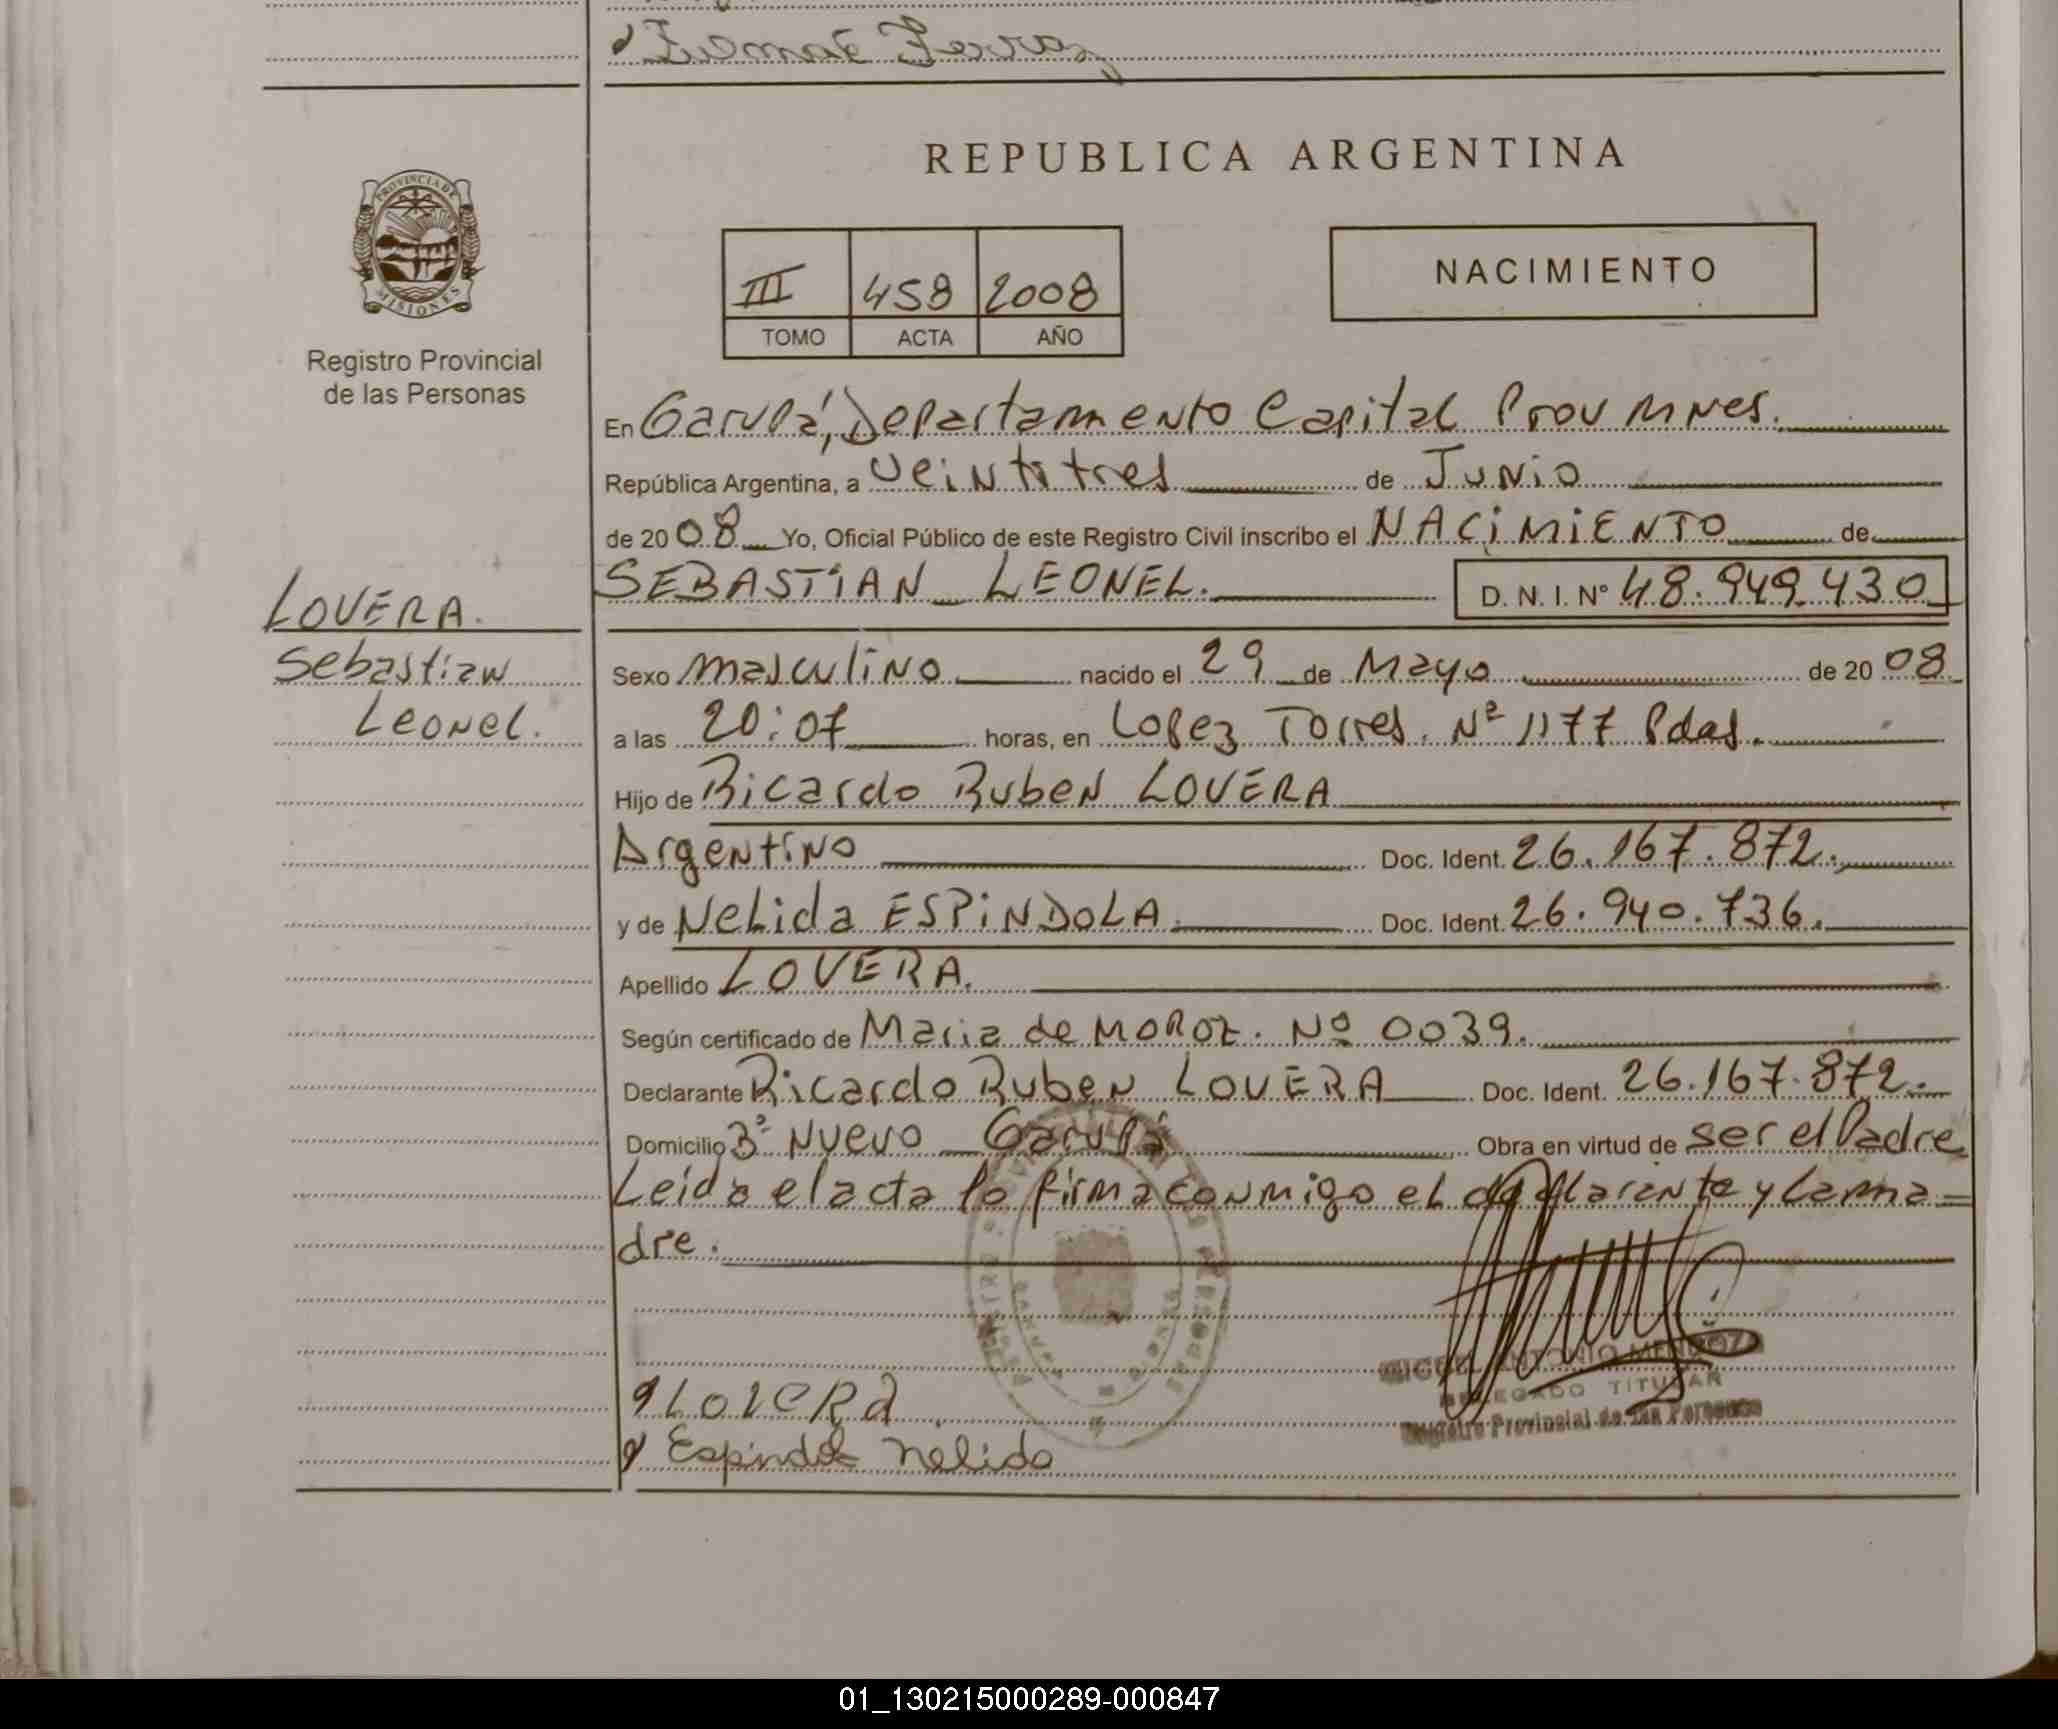 REPUBLICA ARGENTINA
PROVINCIA DE
MISIONES
Registro Provincial
de las Personas
III 458 2008
TOMO ACTA AÑO
NACIMIENTO
En Garupá, Departamento Capital Prov Mnes.
República Argentina, a veintitres de Junio
de 2008 Yo, Oficial Público de este Registro Civil inscribo el NACIMIENTO de
SEBASTIAN LEONEL. D. N. I. Nº 48.949.430
LOVERA.
Sebastian
Leonel.
Sexo masculino nacido el 29 de Mayo de 2008
a las 20:07 horas, en Lopez Torres. Nº 1177 Pdas.
Hijo de Ricardo Ruben LOVERA
Argentino Doc. Ident. 26.167.872.
y de Nelida ESPINDOLA. Doc. Ident. 26.940.736.
Apellido LOVERA.
Según certificado de Maria de MOROZ. Nº 0039.
Declarante Ricardo Ruben LOVERA Doc. Ident. 26.167.872.
Domicilio Bº Nuevo Garupá Obra en virtud de ser el Padre
Leida el acta la firma conmigo el declarante y la ma=
dre.
ANTONIO MENDOZA
DELEGADO TITULAR
Registro Provincial de las Personas
LOVERA
Espindola Nelida
01_130215000289-000847